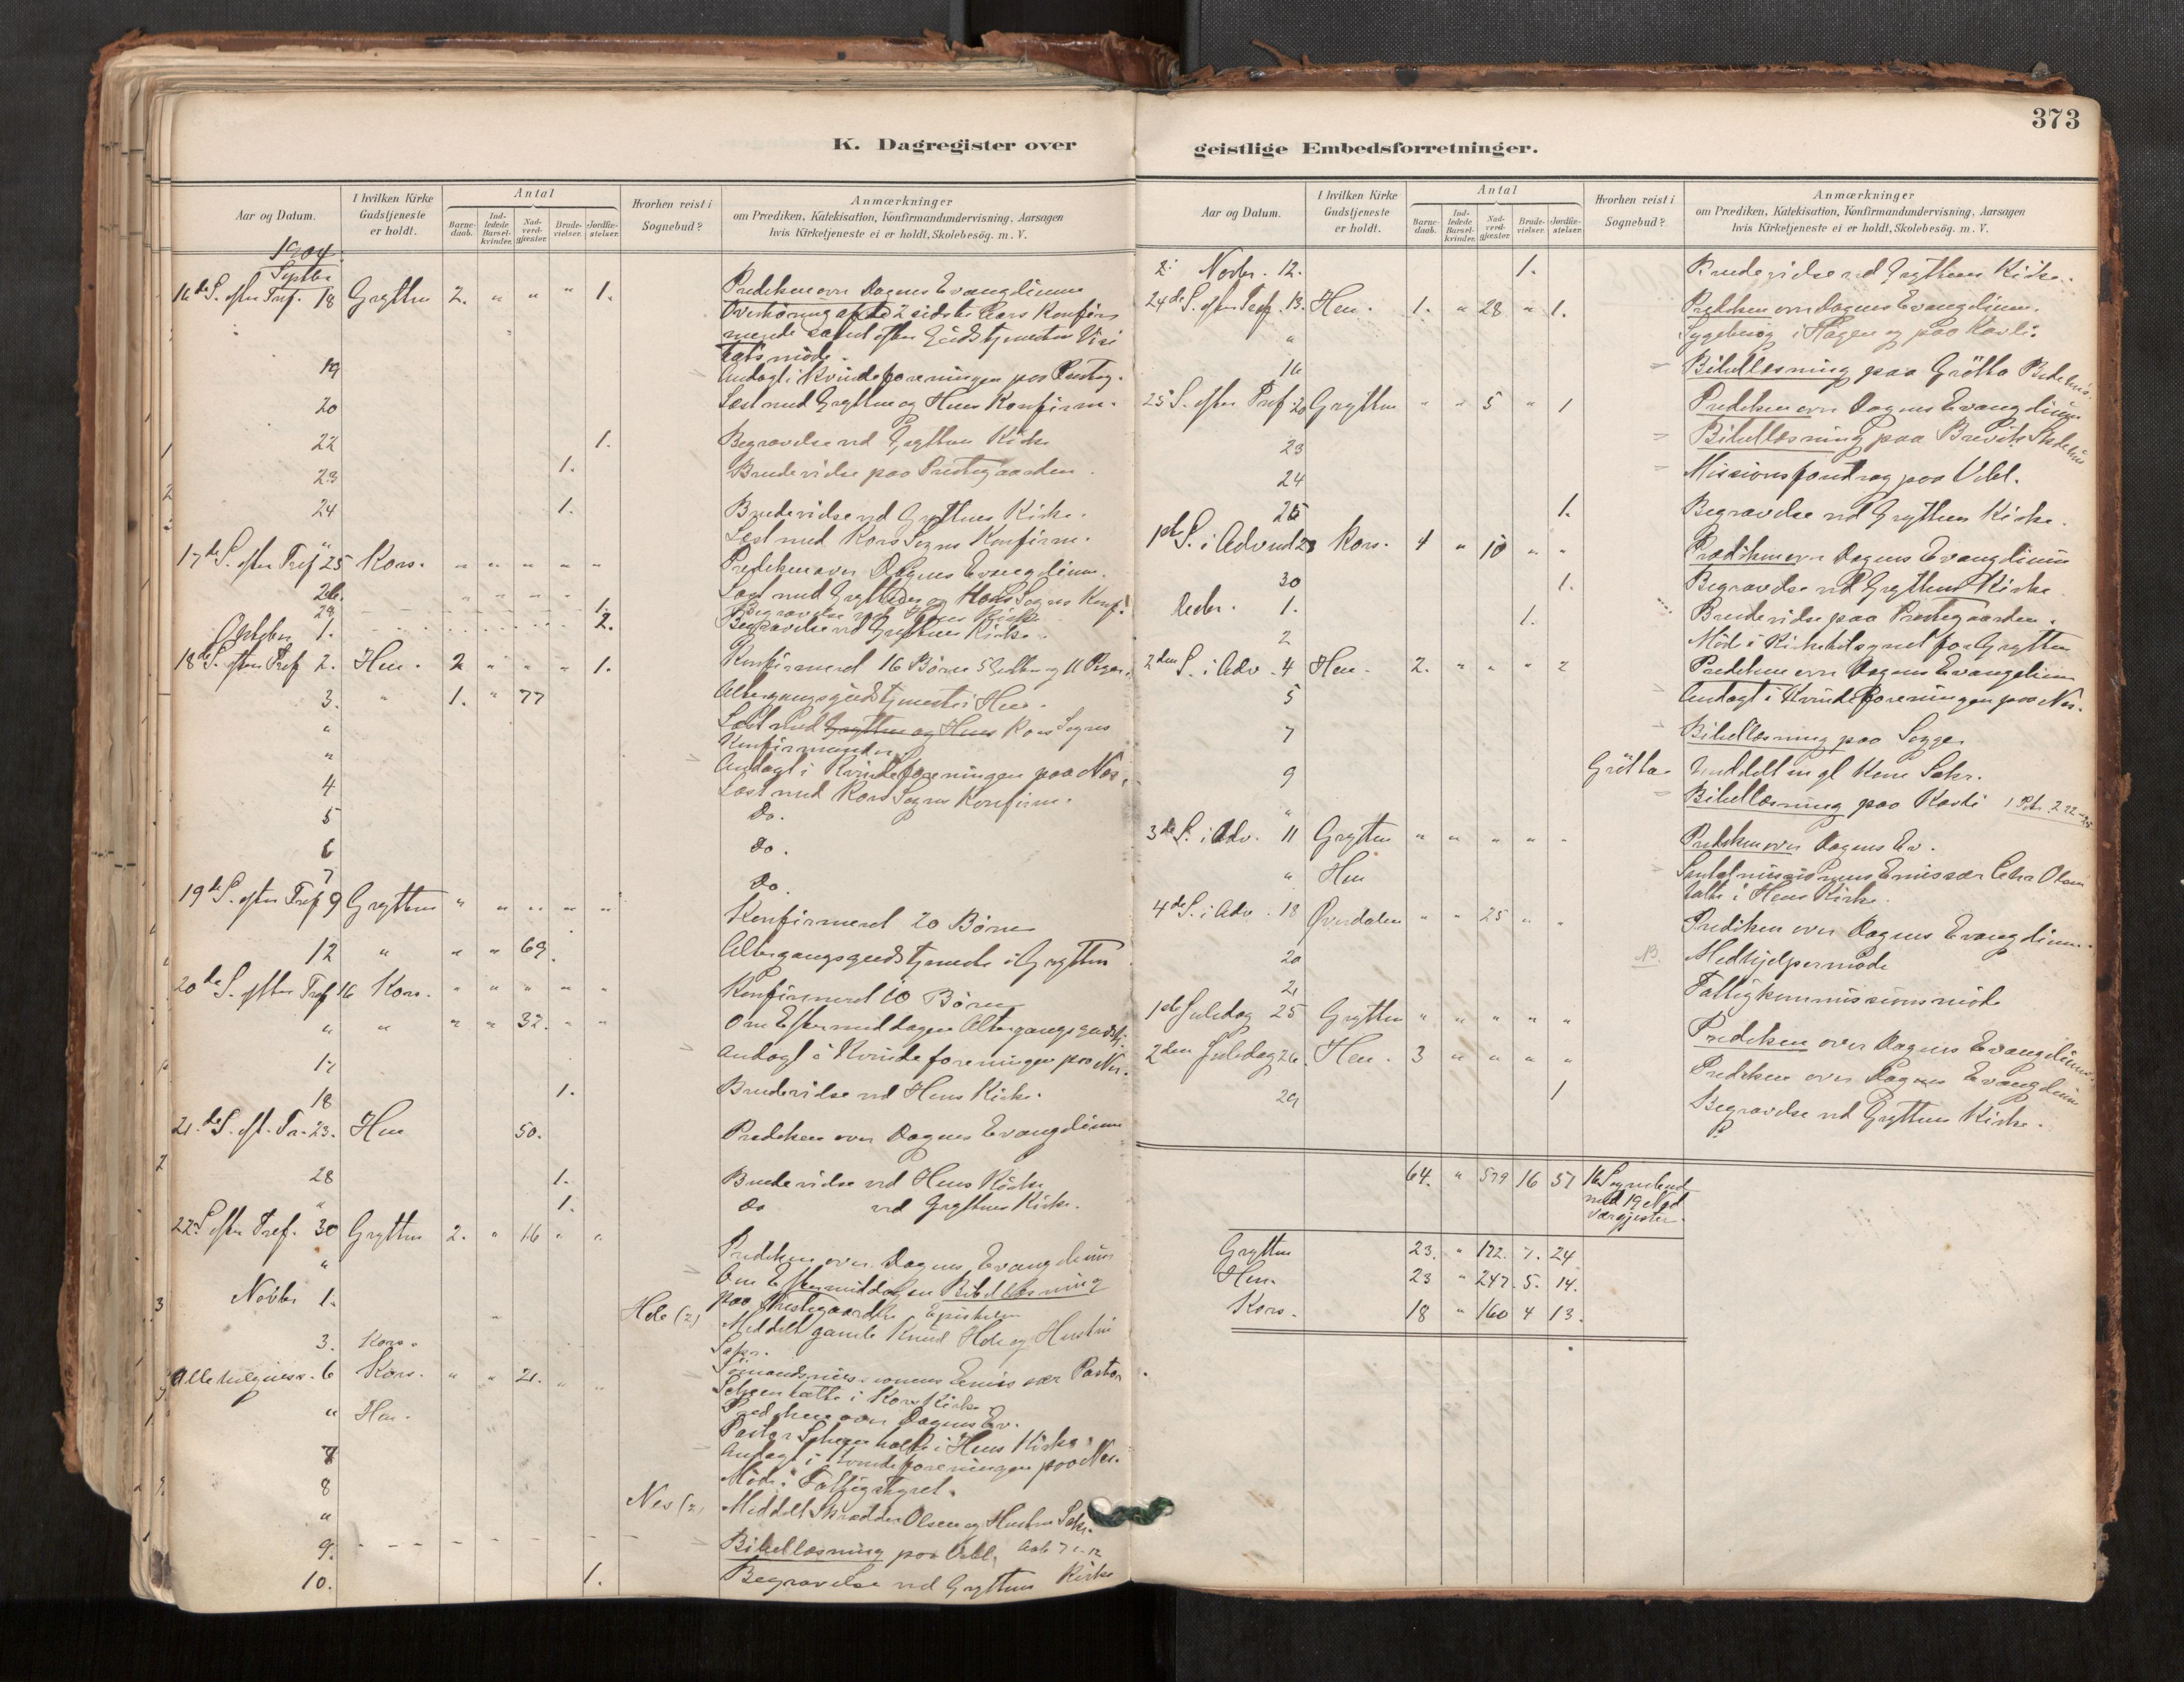 K. Dagregister over
Aar og Datum.
I hvilken Kirke Gudstjeneste er holdt.
Antal
Barne-daab.
Ind-ledede Barsel-kvinder.
Nad-verd-gjæster.
Brude-vielser.
Jordfæ-stelser.
Hvorhen reist i Sognebud?
Anmærkninger
om Prædiken, Katekisation, Konfirmandundervisning, Aarsagen
hvis Kirketjeneste ei er holdt, Skolebesög. m. V.
1904.
Septbr
16de S. efter Tref. 18 Grytten 2. " " " 1. Prediken over Dagens Evangelium
Overhöring af de 2 sidste Aars Konfir
mende samt efter Gudstjenesten Visi
tatsmöde.
19 Andagt i Kvindeforeningen paa Presteg.
20 Læst med Grytten og Hens Konfirm.
22 1. Begravelse ved Grytten Kirke
23 1. Brudevielse paa Prestegaarden.
24 1. Brudevielse ved Gryttens Kirke.
" Læst med Kors Sogns Konfirm.
17de S. efter Tref 25 Kors. " " " " " Prediken over Dagens Evangelium.
26. " " " " Læst med Gryttens og Hens Sogns Konf.
29 1. Begravelse ved Hens Kirke
Oktober 1. 2. Begravelse ved Gryttens Kirke.
18de S. efter Tref 2. Hen. 2 " " " 1. Konfirmeret 16 Börn 5 Gutter og 11 Piger.
3. " 1. " 77 Altergangsgudstjeneste i Hen.
" Læst med Grytten og Hens Kors Sogns
Konfirmander.
" Andagt i Kvindeforeningen paa Nes.
4 Læst med Kors Sogns Konfirm.
5 Do.
6 Do.
7 Do.
19de S. efter Tref 9 Grytten " " " " " Konfirmeret 20 Börn
12 " " " 69. Altergangsgudstjeneste i Grytten
20de S. efter Tref 16 Kors. " " " " " Konfirmeret 10 Börn
" " " " 32. " " Om Eftermiddagen Altergangsgudstj.
17 Andagt i Kvindeforeningen paa Nes.
18 1. Brudevielse ved Hens Kirke.
21.de S. eft. Tr. 23. Hen 50. Prediken over Dagens Evangelium
28 1. Brudevielse ved Hens Kirke
" 1. do ved Gryttens Kirke.
22. S efter Tref. 30 Grytten 2. " 16 " " Prediken over Dagens Evangelium
" Om Eftermiddagen Bibellæsning
paa Prestegaarden Epistelen
Novbr 1. Hole (2) Meddelt gamle Knud Hole og Hustru
Sakr.
3. Kors. Sömandsmissionens Emissær Pastor
Scheen talte i Kors Kirke
Allehelgens s. 6 Kors. " " 21. " " Prediken over Dagens Ev.
" Hen. Pastor Scheen talte i Hens Kirke.
7 Andagt i Kvindeforeningen paa Nes.
8 Möde i Fattigstyret.
" Nes (2) Meddelt Skrædder Olsen og Hustru Sakr.
9. Bibellæsning paa Vebl.
10. 1. Begravelse ved Gryttens Kirke
373
geistlige Embedsforretninger.
Aar og Datum.
I hvilken Kirke Gudstjeneste er holdt.
Antal
Barne-daab.
Ind-ledede Barsel-kvinder.
Nad-verd-gjæster.
Brude-vielser.
Jordfæ-stelser.
Hvorhen reist i Sognebud?
Anmærkninger
om Prædiken, Katekisation, Konfirmandundervisning, Aarsagen
hvis Kirketjeneste ei er holdt, Skolebesög. m. V.
Novbr. 12. 1. Brudevielse ved Gryttens Kirke.
24de S. efter Tref. 13. Hen. 1. " 28 " 1. Prediken over Dagens Evangelium.
" Sygebesög i Hagen og paa Kavli.
16 Bibellæsning paa Grötta Bedehus.
25 S. efter Tref. 20 Grytten " " 5 " 1 Prediken over Dagens Evangelium
23 Bibellæsning paa Brevik Skolehus
24 Missionsforedrag paa Vebl.
25 1. Begravelse ved Gryttens Kirke.
1ste S. i Advent 28 Kors. 4 " 10 " " Prædiken over Dagens Evangelium
30 1. Begravelse ved Gryttens Kirke
Decbr. 1. 1. Brudevielse paa Prestegaarden.
2 Möde i Kirketilsynet for Grytten
2den S. i Adv. 4 Hen. 2. " " " 2 Prediken over Dagens Evangelium
5 Andagt i Kvindeforeningen paa Nes.
7 Bibellæsning paa Sogge
9 Grötta Meddelt en gl Kone Sakr.
" Bibellæsning paa Kavli 1 Pet. 2.22-25
3de S. i Adv. 11 Grytten " " " " " Prediken over Dagens Ev.
" Hen Santalmissionens Emissær Chr Olsen
talte i Hens Kirke.
4de S. i Adv. 18 Överdalen " " 25 " " Prediken over Dagens Evangelium.
20 Medhjelpermöde
21 Fattigkommissionsmöde
1ste Juledag 25 Grytten " " " " " Prediken over Dagens Evangelium.
2den Juledag 26. Hen. 3 " " " " Prediken over Dagens Evangelium
29 1 Begravelse ved Gryttens Kirke.
64. " 579 16 51 16 Sognebud
med 19 Nad
værgjester.
Grytten 23. " 172. 7. 24
Hen. 23 " 247. 5. 14.
Kors. 18 " 160 4 13.